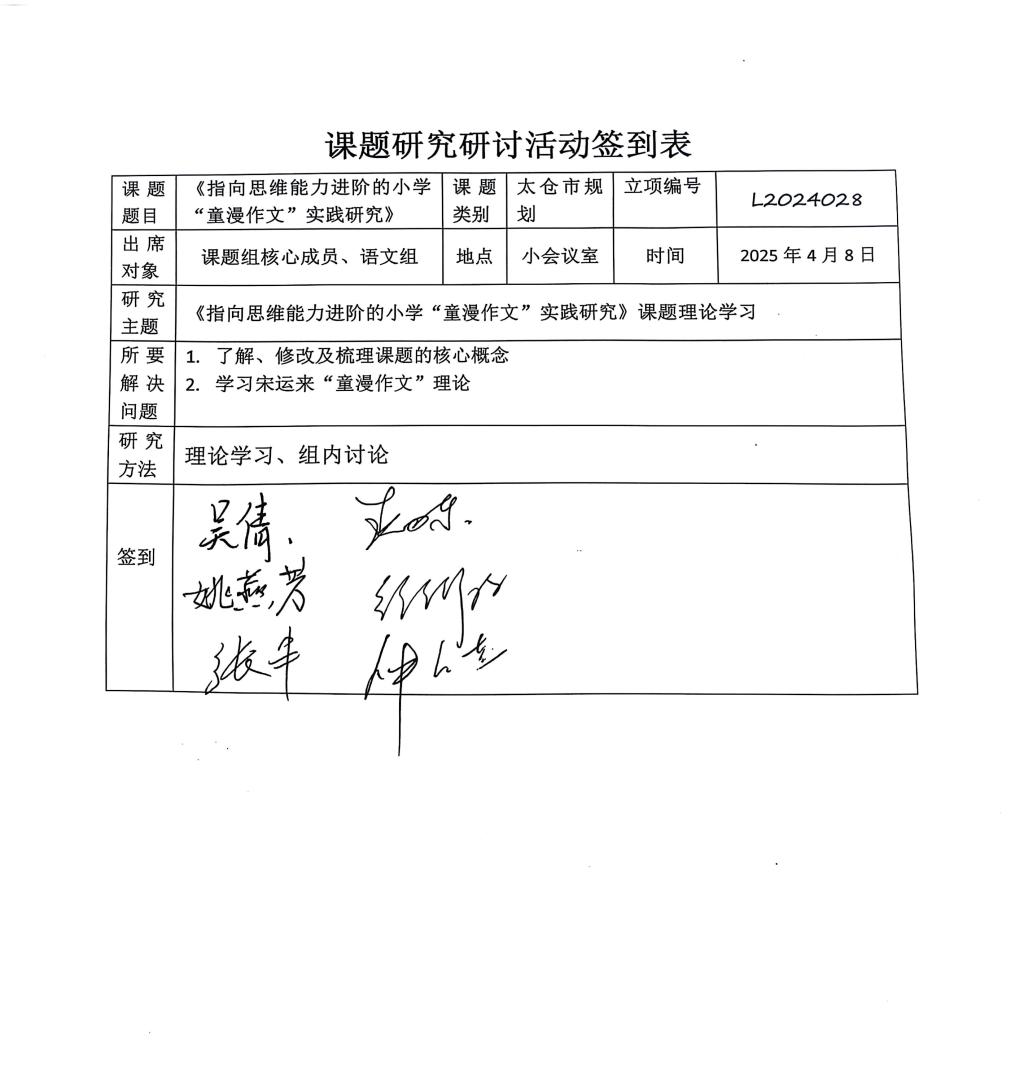 课题研究研讨活动签到表
课题题目 《指向思维能力进阶的小学“童漫作文”实践研究》 课题类别 太仓市规划 立项编号 L2024028
出席对象 课题组核心成员、语文组 地点 小会议室 时间 2025年4月8日
研究主题 《指向思维能力进阶的小学“童漫作文”实践研究》课题理论学习
所要解决问题 1. 了解、修改及梳理课题的核心概念
2. 学习宋运来“童漫作文”理论
研究方法 理论学习、组内讨论
签到
吴倩
姚燕芳
张丰